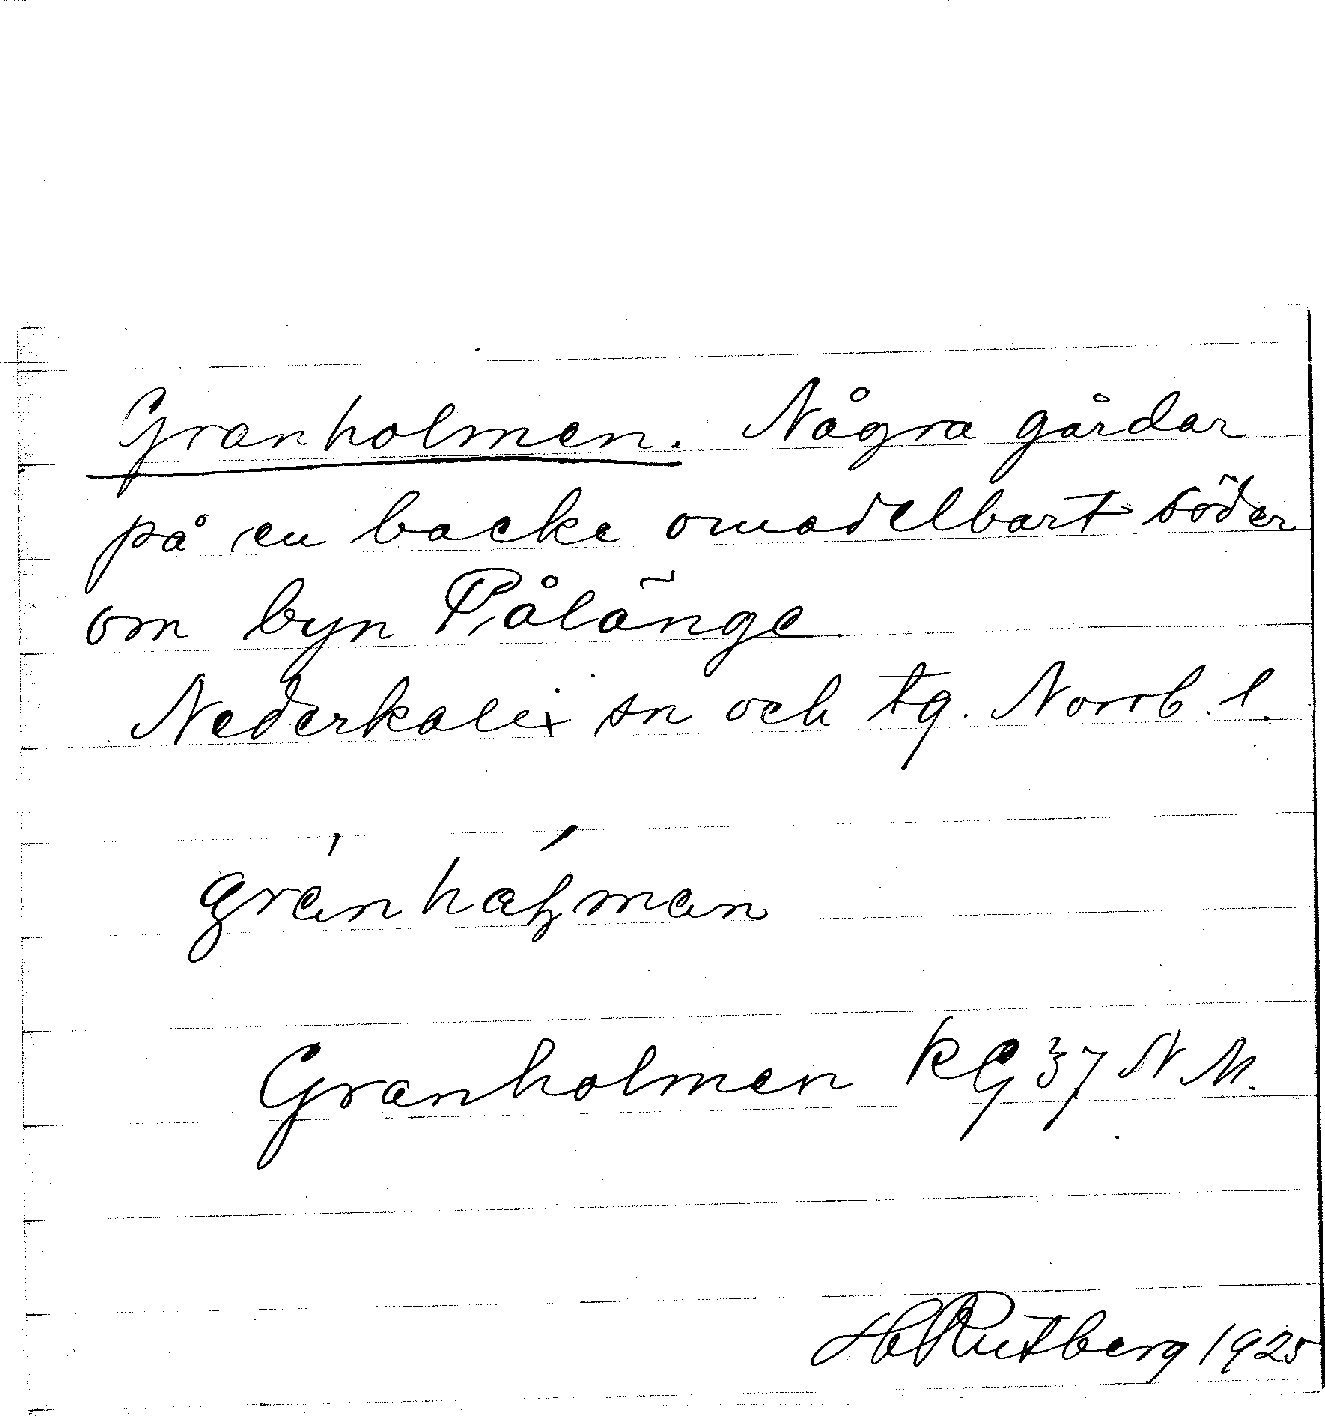 Granholmen. Några gårdar
på en backe omedelbart söder
om byn Pålänge
Nederkalix sn och tg. Norrb. l.
gránháɫman
Granholmen KG 37 N M.
H Rutberg 1925